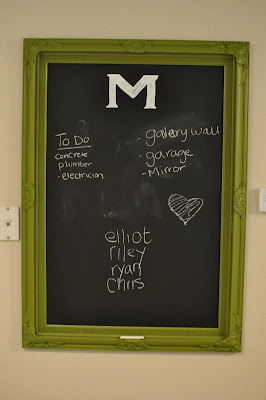 M
To Do
concrete
plumber
- electrician
- gallery wall
- garage
- Mirror
elliot
riley
ryan
chris